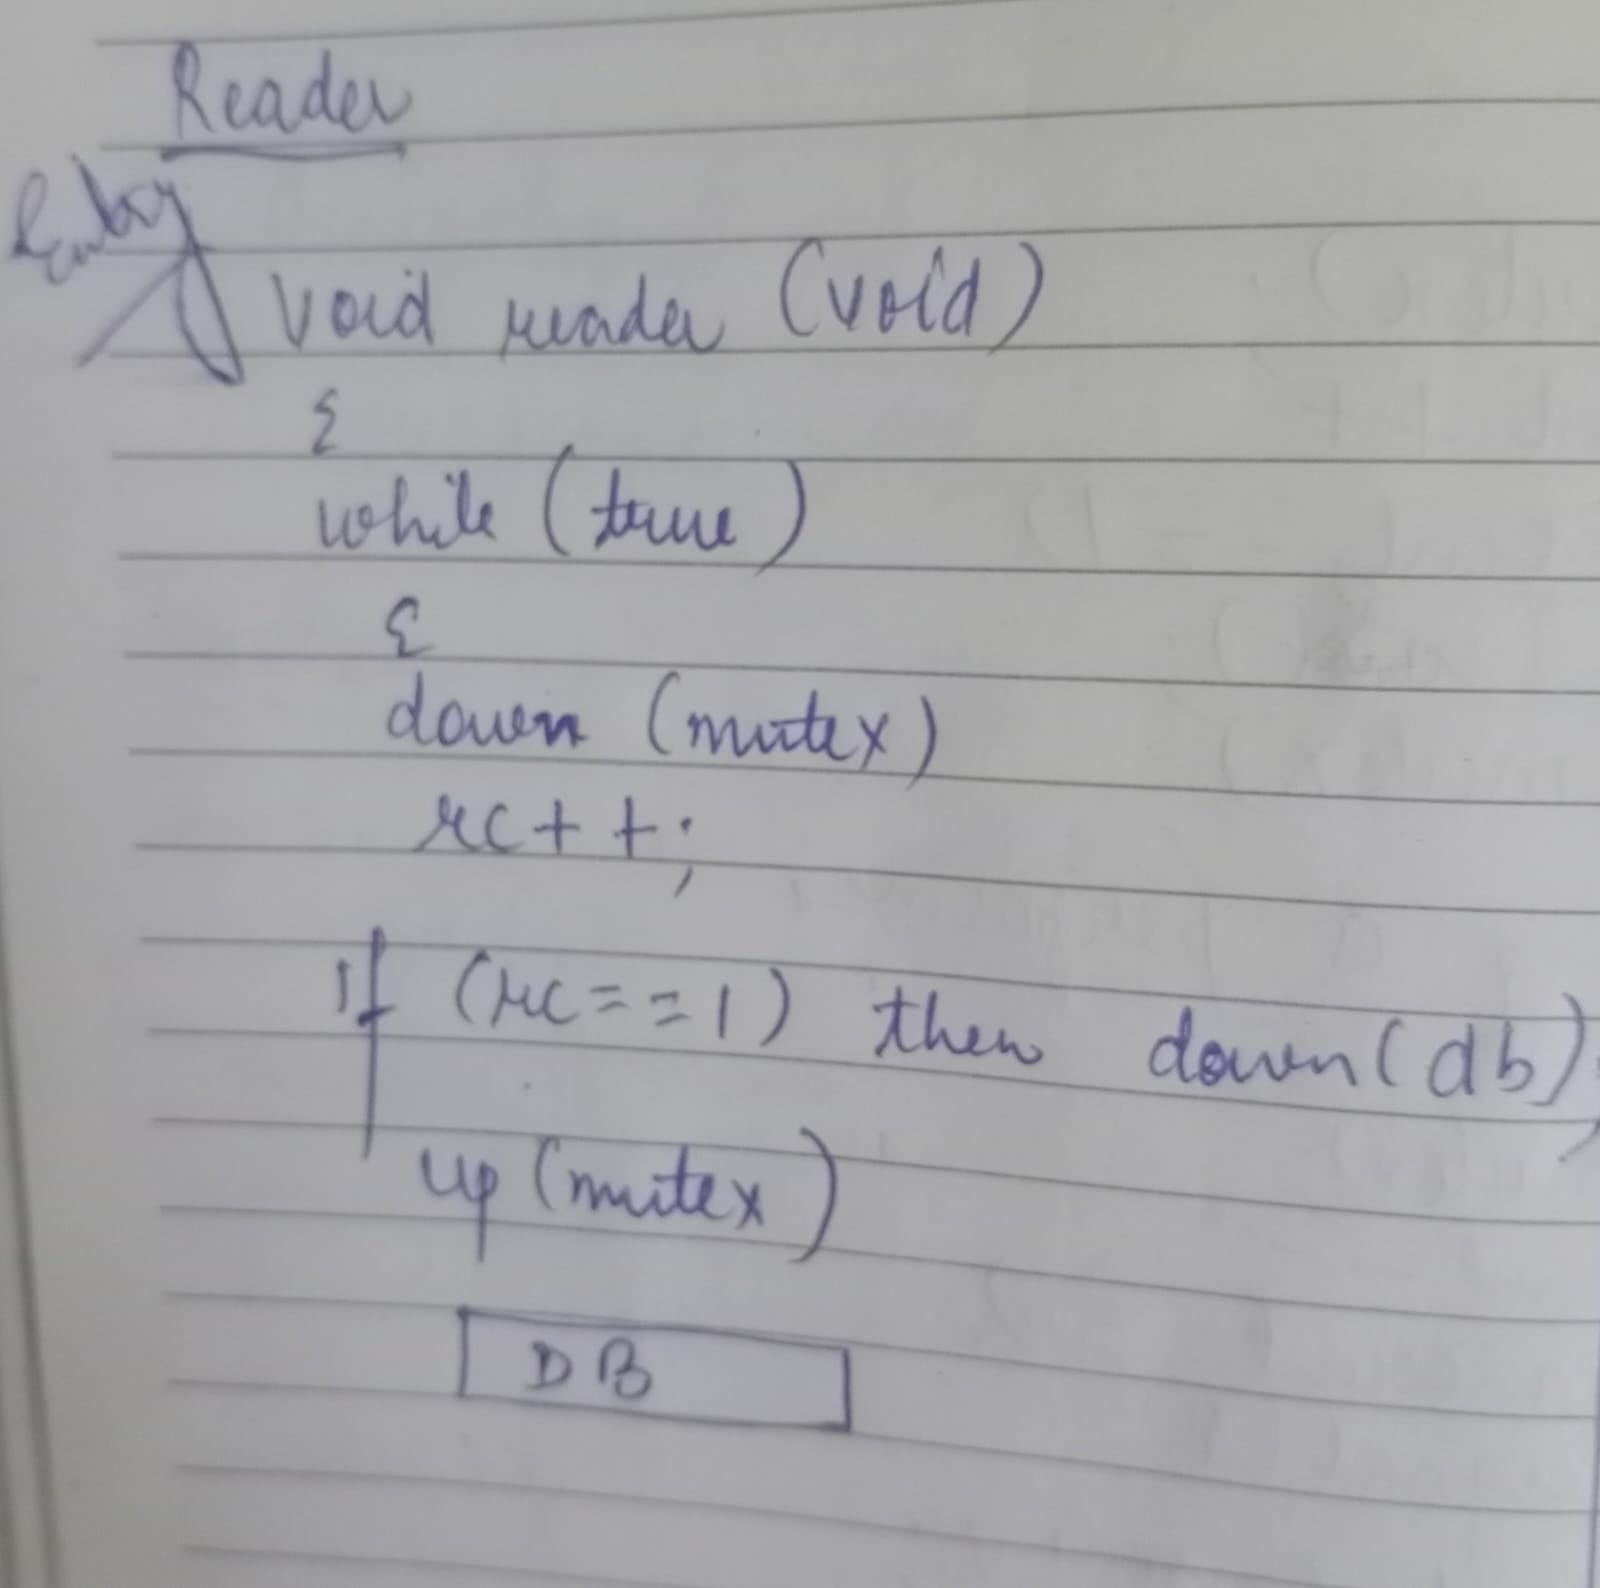 Reader
Entry
void reader (void)
{
while (true)
{
down (mutex)
rc++;
if (rc==1) then down(db);
up (mutex)
DB